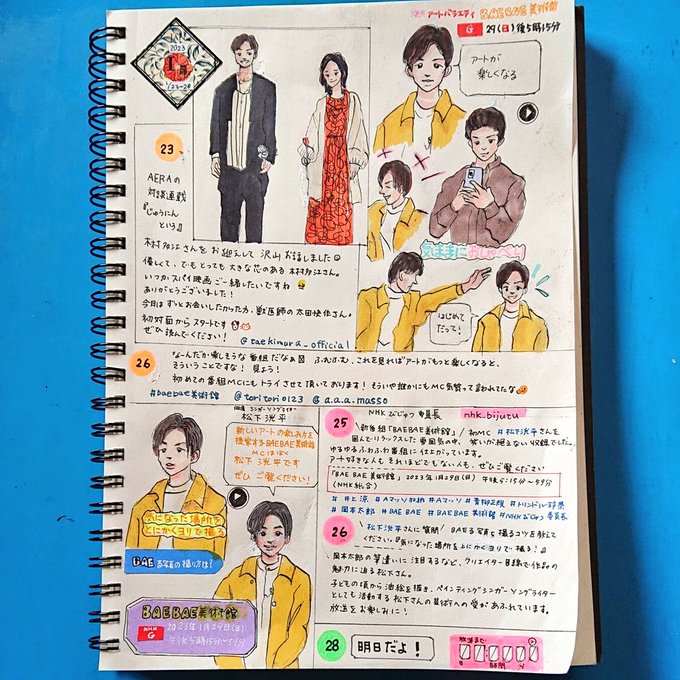 2023
1/23-29
アートバラエティ BAEBAE美術館
G 29(日)後5時15分
アートが
楽しくなる
23
AERAの
対談連載
『じゅうにん
といろ』
木村多江さんをお迎えして沢山お話しました
優しくて、でもとっても大きな花のある木村多江さん。
いつかスパイ映画ご一緒したいですね
ありがとうございました！
今月はずっとお会いしたかった方、獣医師の太田快作さん。
初対面からスタートです
ぜひ読んでください！
@taekimura_official
気ままにおしゃべり
はじめて
だって！
26
なーんだか楽しそうな番組だなぁ ふむふむ、これを見ればアートがもっと楽しくなると、
そういうことですな！見よう！
初めての番組MCにもトライさせて頂いております！そういや誰かにもMC気質って言われてたな
#baebae美術館 @toritori0123 @a.a.a.masso
俳優・シンガーソングライター
松下洸平
新しいアートの飲み方を
提案するBAEBAE美術館
MCはぼく
松下洸平です
ぜひご覧ください
気になった場所を
とにかくヨリで撮る
BAE な写真の撮り方は？
BAEBAE美術館
NHK
G
2023年1月29日(日)
午後5時15分～59分
25
NHKびじゅつ委員長
nhk_bijutu
＼新番組「BAEBAE美術館」／初MC #松下洸平さんを
囲んでリラックスした雰囲気の中、笑いが絶えない収録でした。
ゆるゆるふわふわ番組に仕上がっています。
アート好きな人もそれほどでもない人も、ぜひご覧ください
「BAE BAE美術館」2023年1月29日(日) 午後5:15分～59分
(NHK総合)
#井上涼 #Aマッソ加納 #Aマッソ #青柳正規 #トリンドル玲奈
#岡本太郎 #BAE BAE #BAEBAE美術館 #NHKびじゅつ委員長
26
＼松下洸平さんに質問！BAEな写真を撮るコツを教えて
ください。『気になった場所をとにかくヨリで撮る！』
岡本太郎の筆遣いに注目するなど、クリエイター目線で作品の
魅力に迫る松下さん。
子どもの頃から油絵を描き、ペインティングシンガーソングライター
としても活動する松下さんの美術への愛があふれています。
放送をお楽しみに！
28
明日だよ！
放送まで
時間